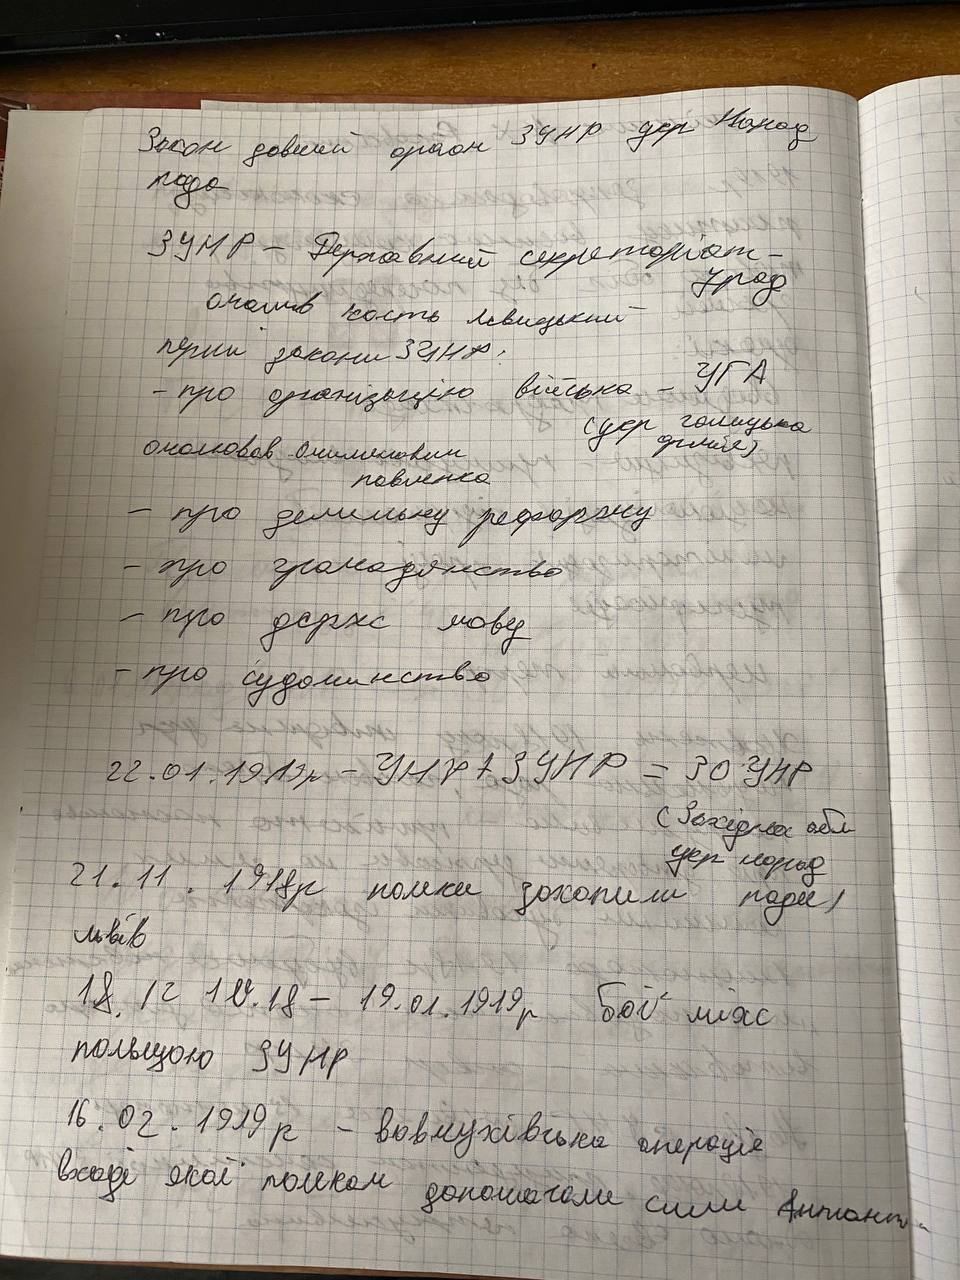 Закон давчий орган ЗУНР укр Народ
рада
ЗУНР – Державний секретаріат –
уряд
очолив Кость Левицький
перші закони ЗУНР:
– про організацію війська – УГА
(укр галицька
армія)
очолював Омелянович
павленко
– про земельну реформу
– про громадянство
– про держ мову
– про судочинство
22.01.1919р – УНР + ЗУНР = ЗО УНР
(Західна обл
укр народ
21.11.1918р поляки захопили рада)
львів
18.12 19.18 – 19.01.1919р бої між
польщою ЗУНР
16.02.1919р – вовчухівська операція
вході якої полякам допомагали сили Антанти